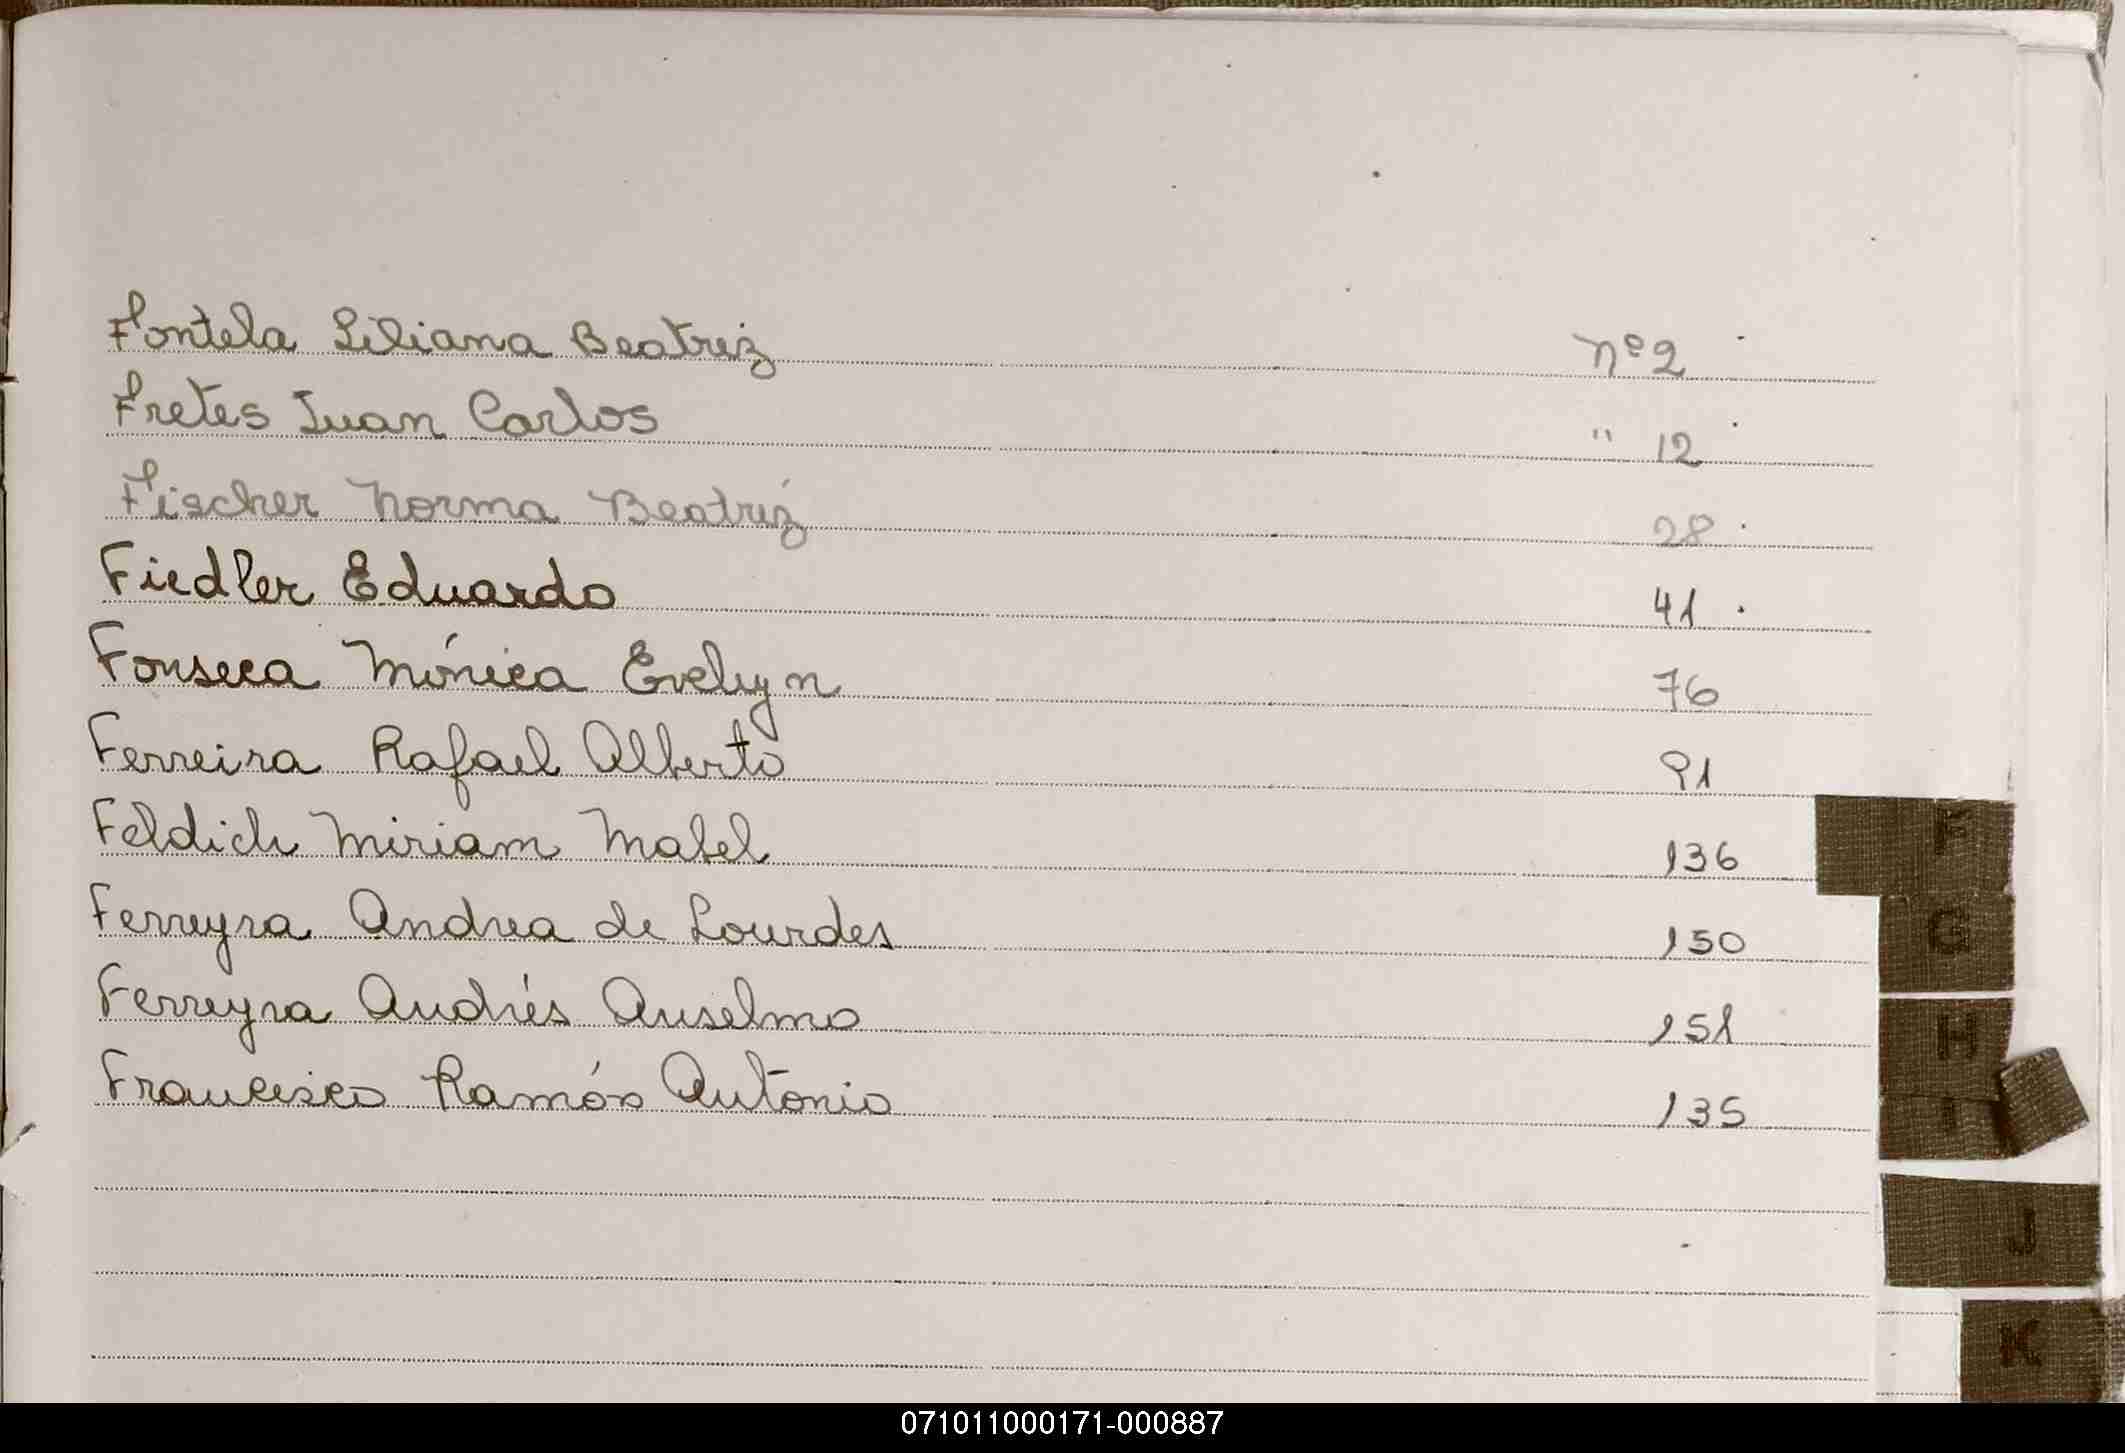 Fontela Liliana Beatriz nº 2
Fretes Juan Carlos " 12
Fischer Norma Beatríz 28
Fiedler Eduardo 41
Fonseca Mónica Evelyn 76
Ferreira Rafael Alberto 91
Feldich Miriam Mabel 136
Ferreyra Andrea de Lourdes 150
Ferreyra Andrés Anselmo 151
Francisco Ramón Antonio 135
F
G
H
I
J
K
071011000171-000887